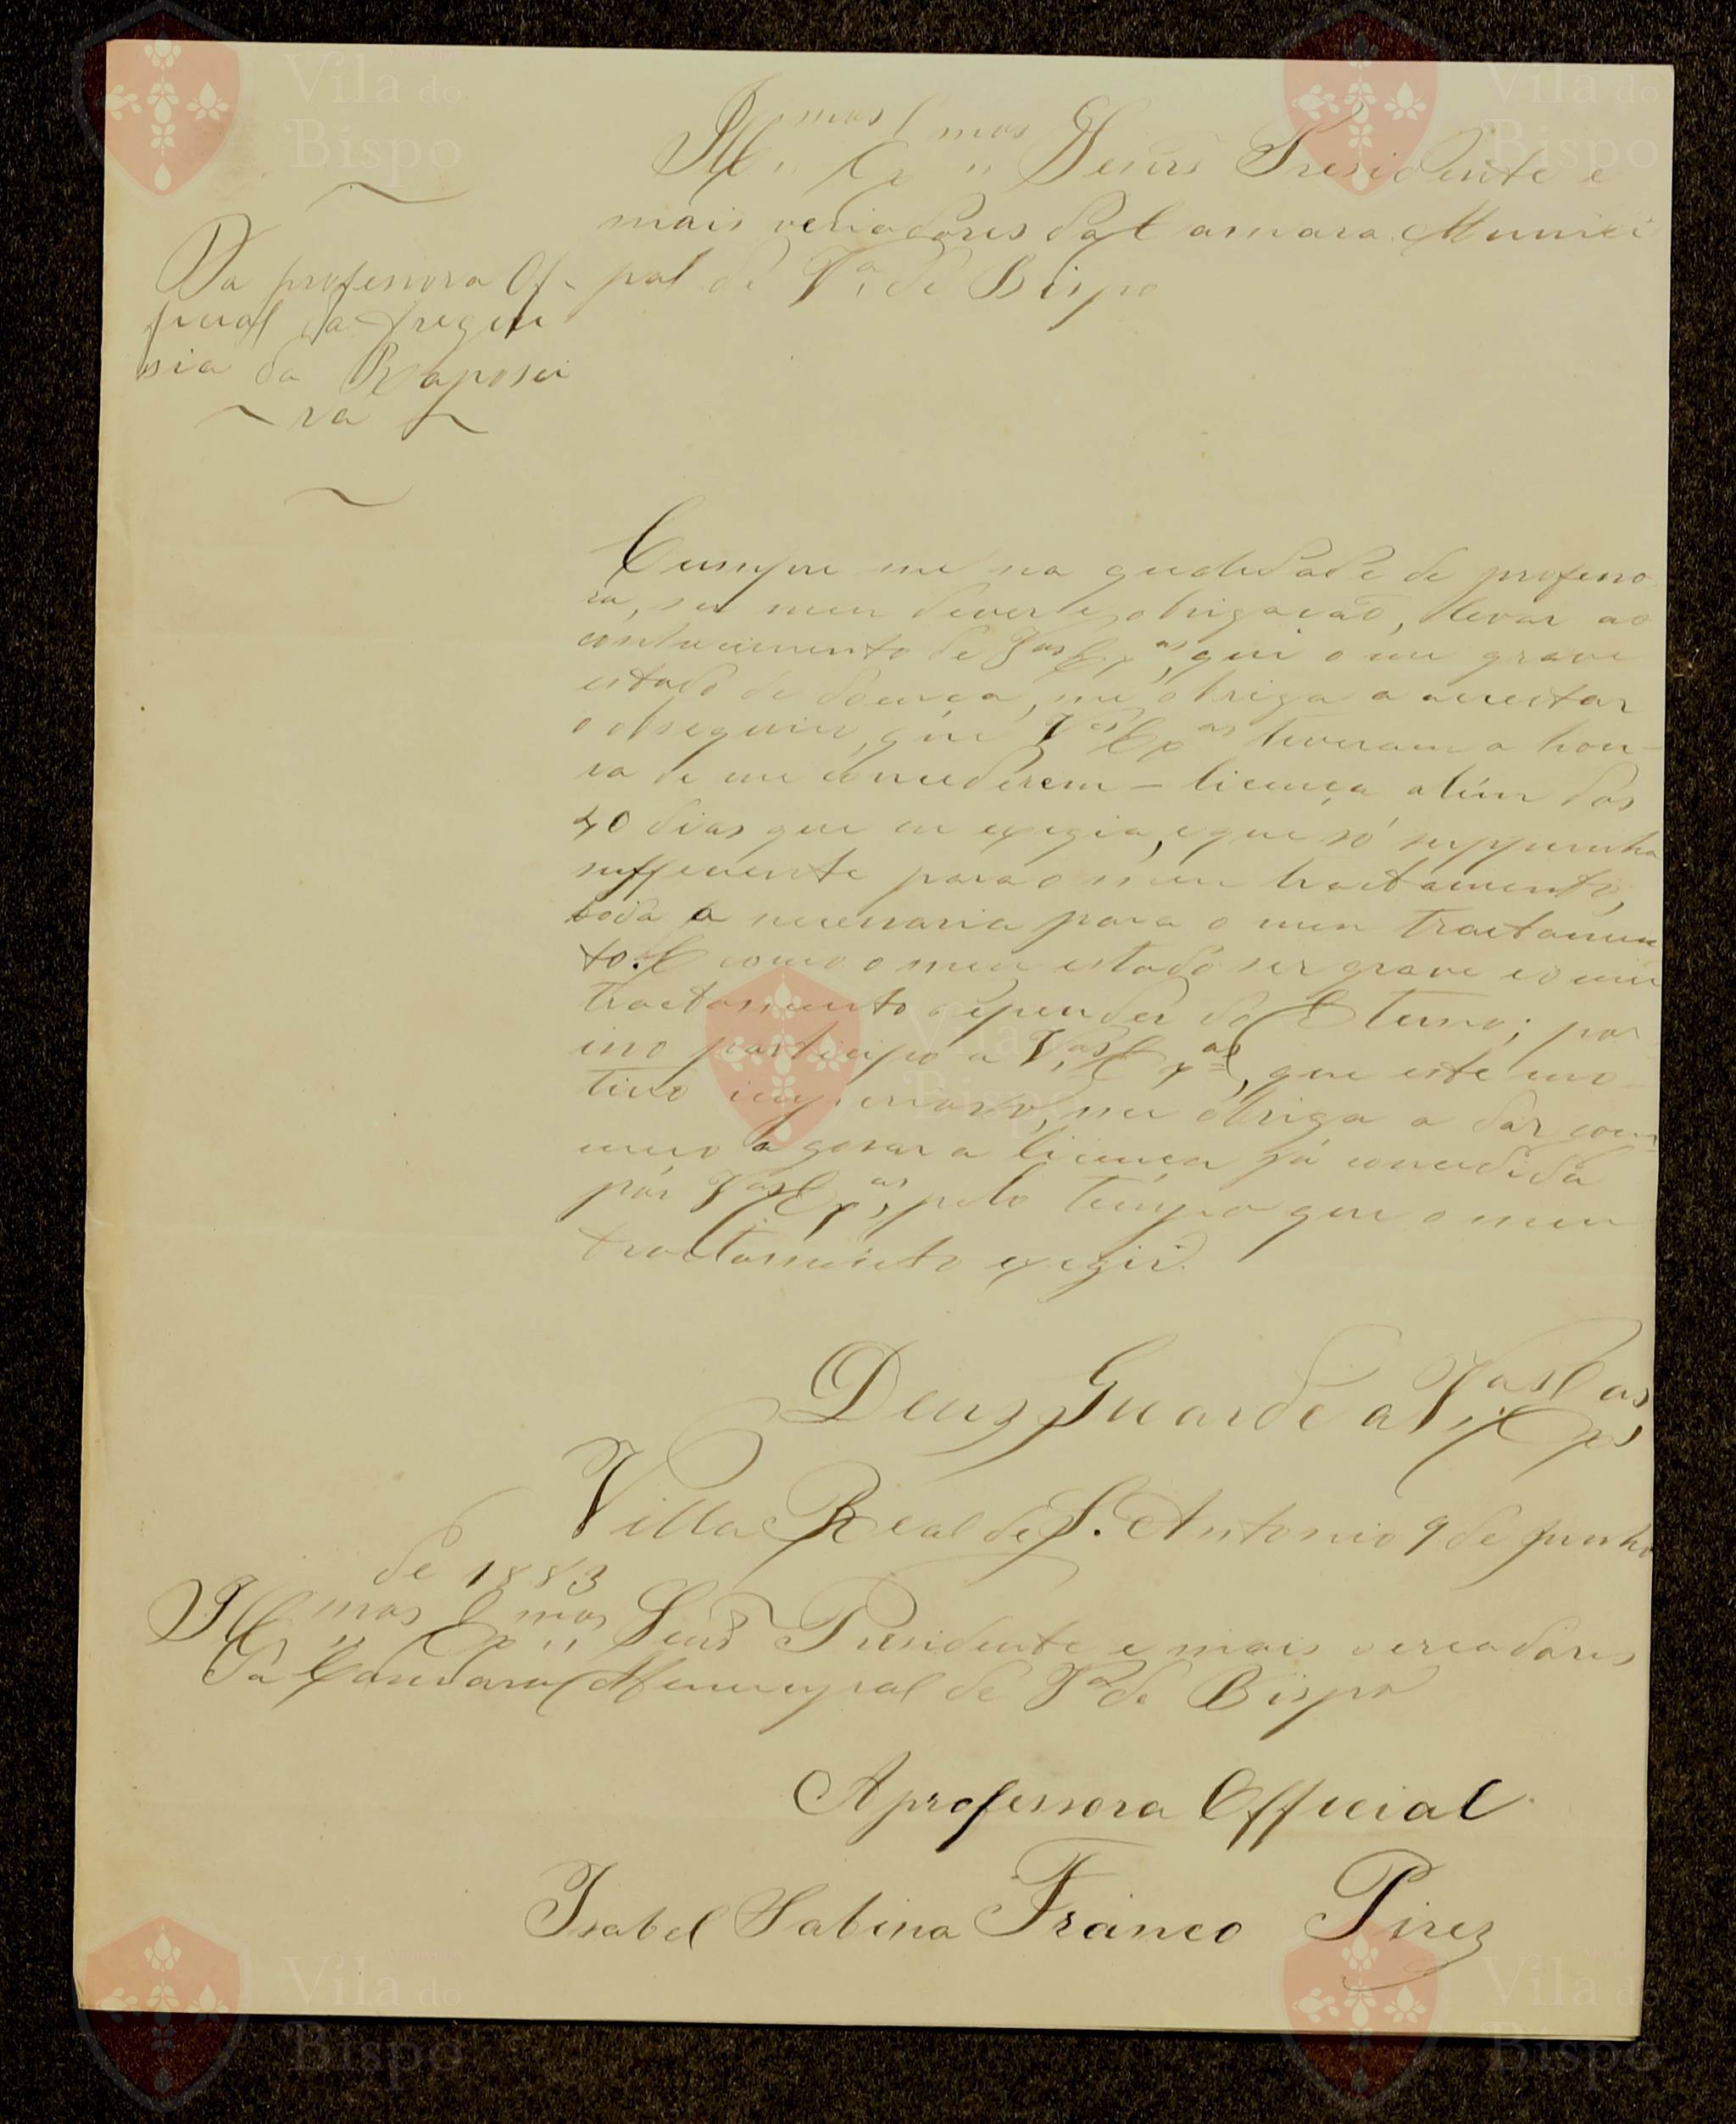 Ill.mos Ex.mos Senrs Presidente e
mais veriadores da Camara Munici
pal de V.a de Bispo
Da professora Of-
ficial da fregue
sia da Raposei
ra
Cumpre me na qualidade de professo
ra, ser meu dever e obrigacão, levar ao
conhecimento de V.as Ex.as, que o meu grave
estado de doença, me obriga a acceitar
o obsequio, que V.as Ex.as tiveram a hon-
ra de me concederem - licença alem dos
40 dias que eu exegia, e que só suppunha
sufficiente para o meu tractamento,
toda a necessaria para o meu tractamen
to. E como o meu estado ser grave e o meu
tractamento depender do Eterno; por
isso participo a V.as Ex.as, que este mo-
tivo imperioso, me obriga a dar com-
meço a gosar a licença já concedida
por V.as Ex.as, pelo tempo que o meu
tractamento exegir.
Deus Guarde a V.as Ex.as
Villa Real de S. Antonio 9 de Junho
de 1883
Ill.mos Ex.mos Senrs Presidente e mais vereadores
da Camara Municipal de V.a de Bispo
A professora Official
Isabel Sabina Franco Pirez
Vila do
Bispo
Vila do
Bispo
Vila do
Bispo
Vila do
Bispo
Vila do
Bispo